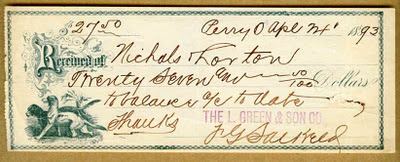 $27 50 Perry O Apl 24 1893
Received of Nichols & Lorton
Twenty Seven and 50/100 Dollars
to balance a/c to date
Thanks THE L. GREEN & SON CO.